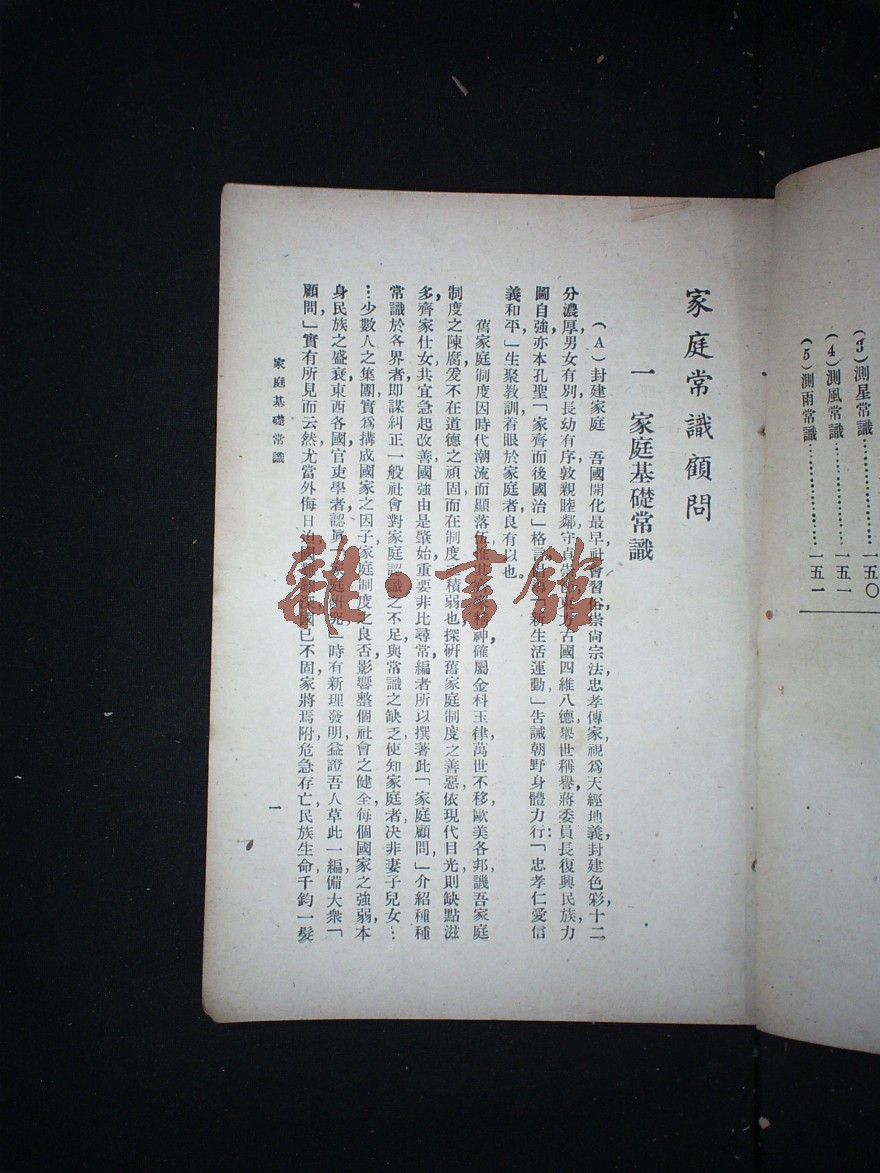 (3)測星常識……………一五〇
(4)測風常識……………一五一
(5)測雨常識……………一五一
家庭常識顧問
一 家庭基礎常識
(A)封建家庭 吾國開化最早,社會習俗,崇尙宗法,忠孝傳家,視爲天經地義,封建色彩,十二
分濃厚,男女有別,長幼有序,敦親睦鄰,守貞 古國,四維八德,舉世稱譽,蔣委員長復興民族,力
圖自強,亦本孔聖「家齊而後國治」格言 新生活運動」告誡朝野,身體力行:「忠孝仁愛信
義和平」生聚敎訓,着眼於家庭者,良有以也。
舊家庭制度,因時代潮流而顯落伍 神,確屬金科玉律,萬世不移,歐美各邦,譏吾家庭
制度之陳腐,爰不在道德之頑固,而在制度 積弱也,探研舊家庭制度之善惡,依現代目光,則缺點滋
多,齊家仕女,共宜急起改善,國強由是肇始,重要非比尋常,編者所以撰著此「家庭顧問」介紹種種
常識於各界者,即謀糾正一般社會對家庭認識之不足,與常識之缺乏,使知家庭者,决非妻子兒女…
…少數人之集團,實爲搆成國家之因子,家庭制度之良否,影響整個社會之健全,每個國家之強弱,本
身民族之盛衰,東西各國官吏學者,認眞「家庭 」時有新理發明,益證吾人草此一編,備大衆「
顧問」實有所見而云然,尤當外侮日 國 國已不固,家將焉附,危急存亡,民族生命,千鈞一髮
家庭基礎常識
一
雜·書館